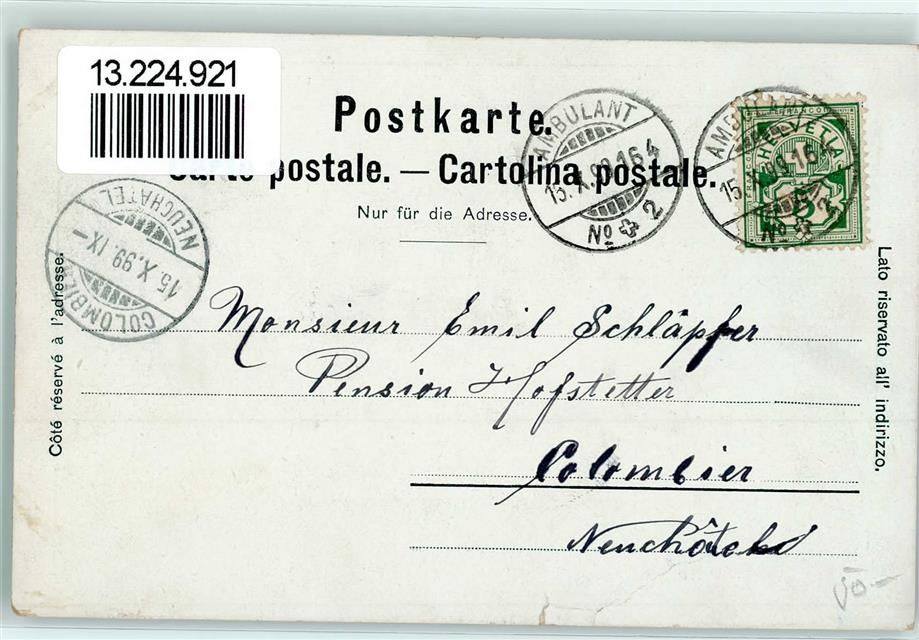 13.224.921
Postkarte.
Carte postale. — Cartolina postale.
Nur für die Adresse.
AMBULANT
15. X. 99. 16 4
No 2
AMBULANT
15. X. 99. 16
No 2
FRANCO
HELVETIA
5
NEUCHATEL
15. X. 99. IX –
COLOMBIER
Côté réservé à l'adresse.
Lato riservato all' indirizzo.
Monsieur Emil Schläpfer
Pension Hofstetter
Colombier
Neuchâtel